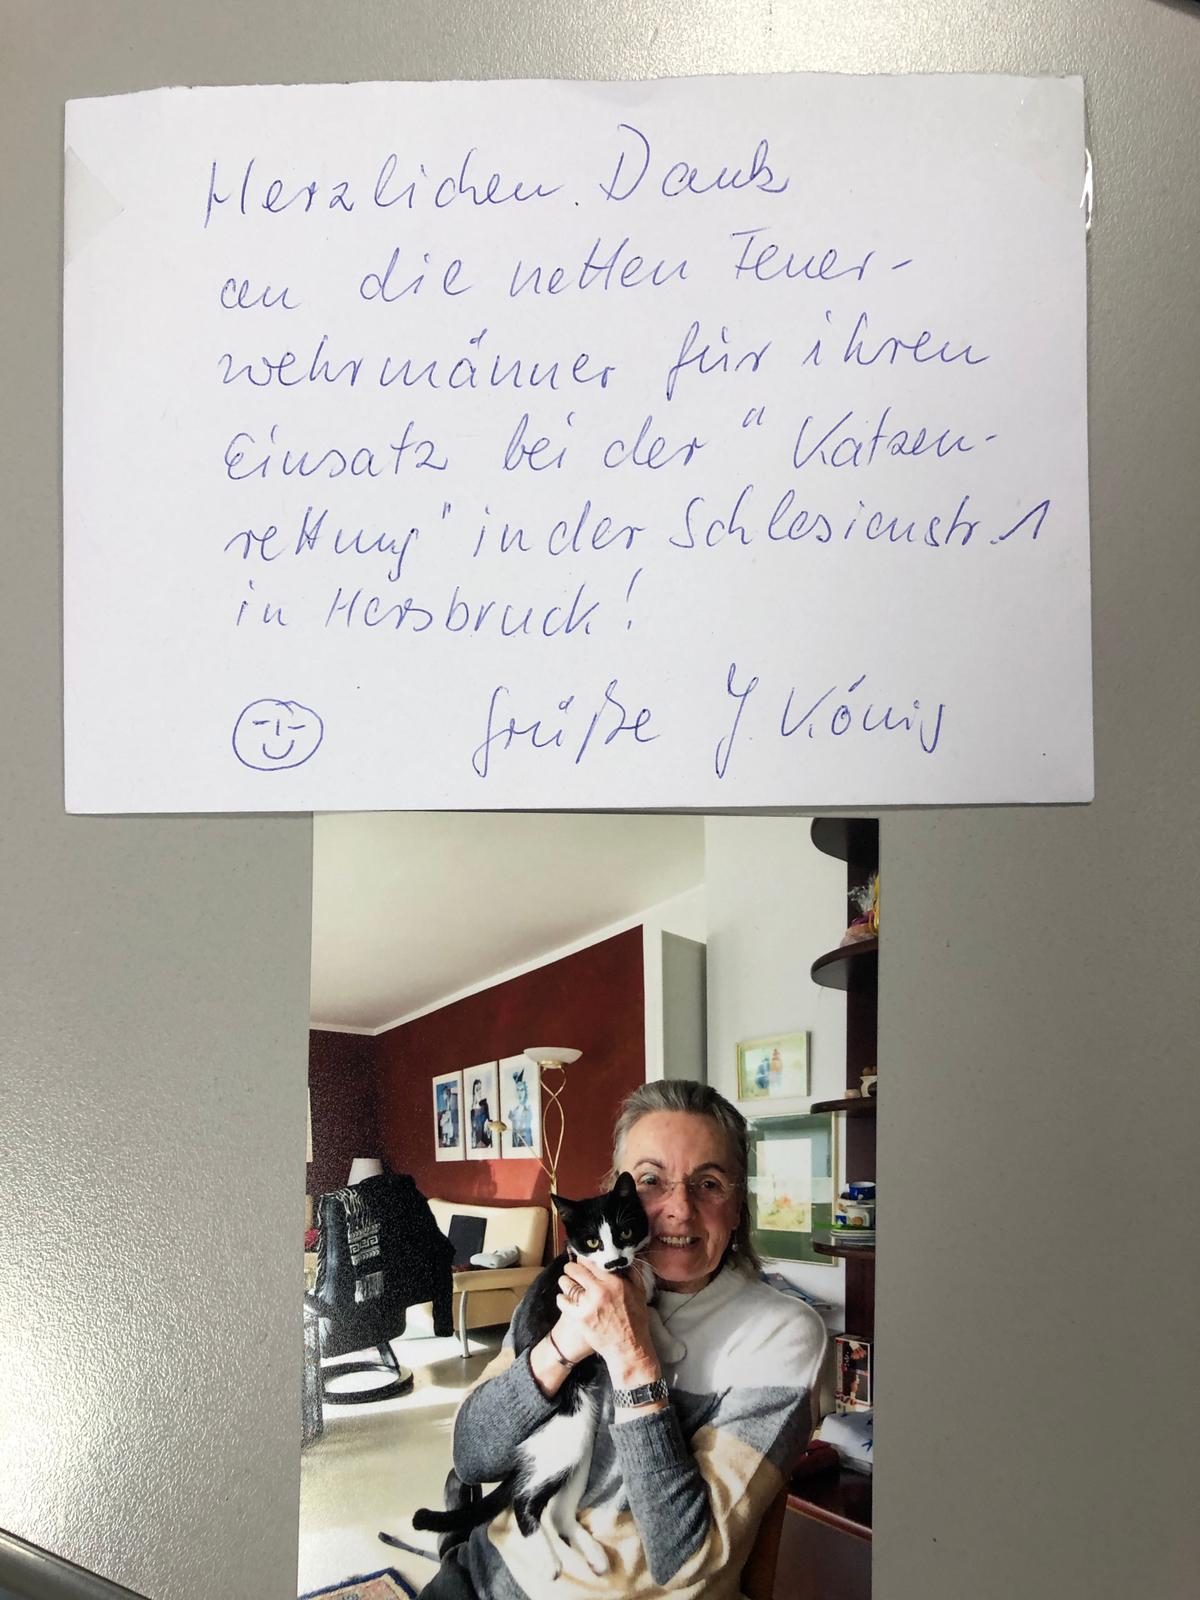 Herzlichen Dank
an die netten Feuer-
wehrmänner für ihren
Einsatz bei der "Katzen-
rettung" in der Schlesienstr. 1
in Hersbruck!
Grüße J. König